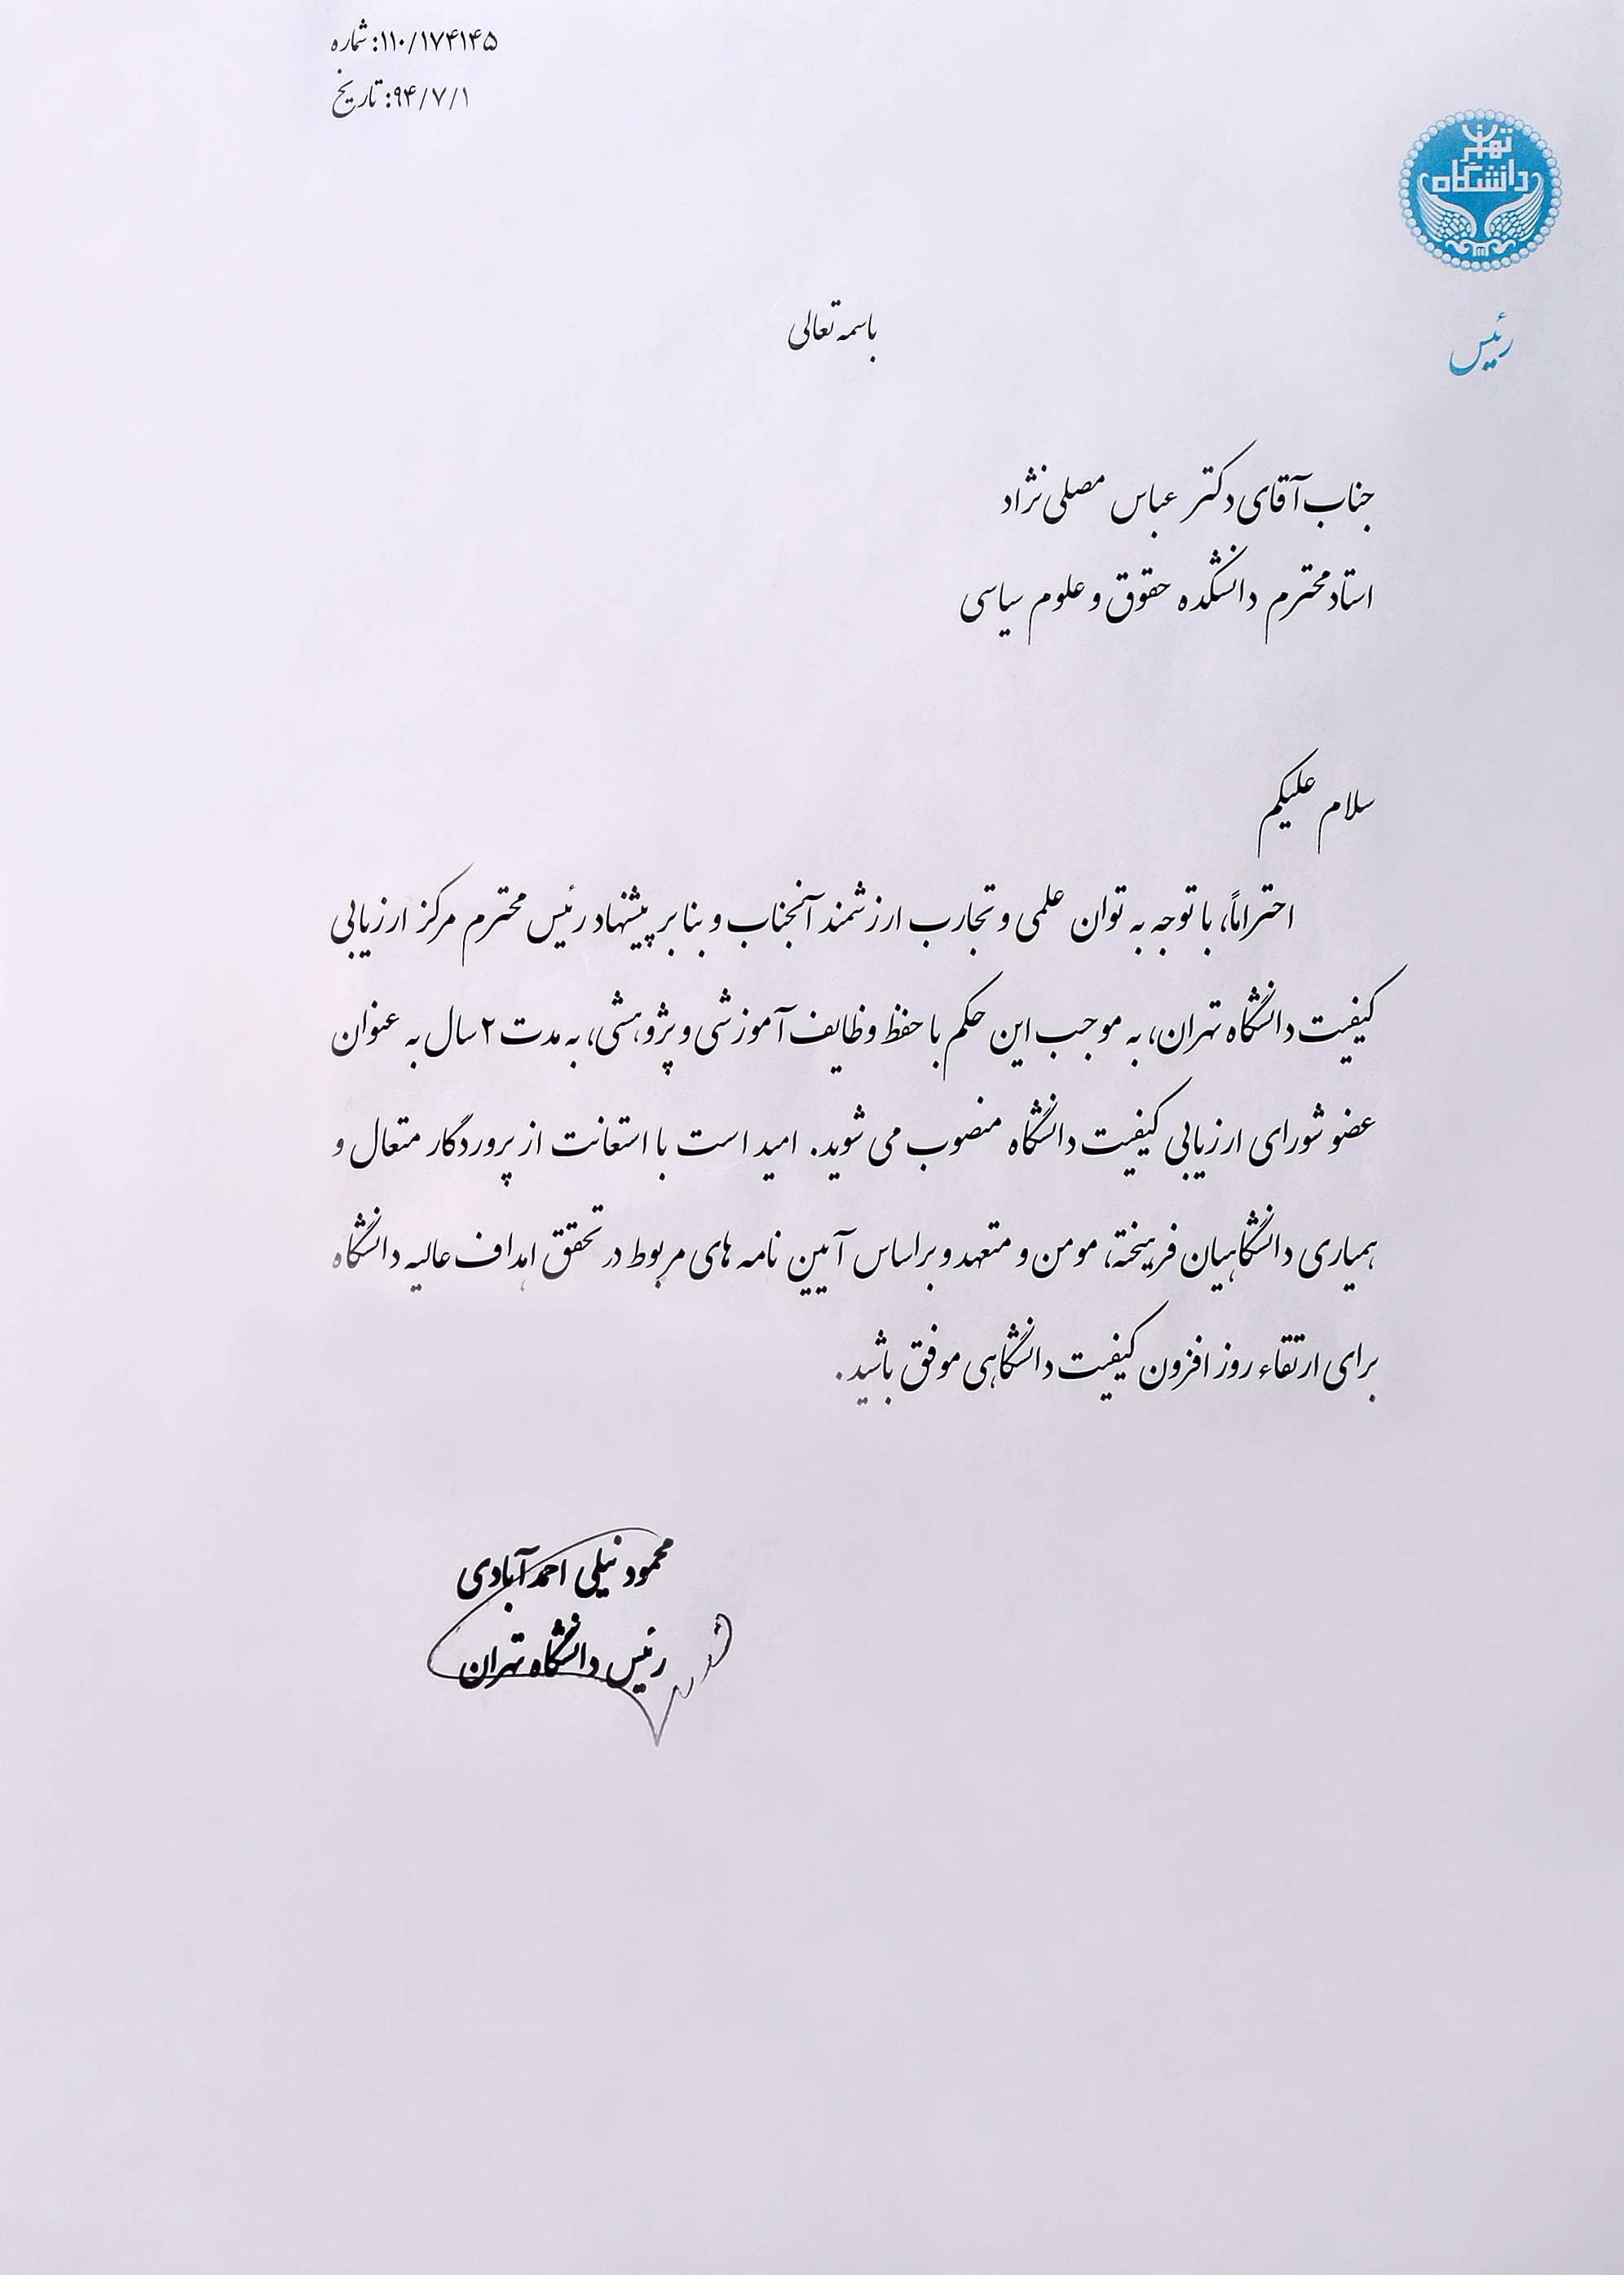 شماره :۱۱۰/۱۷۴۱۴۵
تاریخ :۹۴/۷/۱
دانشگاه تهران
رئیس
باسمه تعالی
جناب آقای دکتر عباس مصلی نژاد
استاد محترم دانشکده حقوق و علوم سیاسی
سلام علیکم
احتراماً، با توجه به توان علمی و تجارب ارزشمند آنجناب و بنا بر پیشنهاد رئیس محترم مرکز ارزیابی
کیفیت دانشگاه تهران، به موجب این حکم با حفظ وظایف آموزشی و پژوهشی، به مدت ۲ سال به عنوان
عضو شورای ارزیابی کیفیت دانشگاه منصوب می شوید. امید است با استعانت از پروردگار متعال و
همیاری دانشگاهیان فرهیخته، مومن و متعهد و براساس آیین نامه های مربوط در تحقق اهداف عالیه دانشگاه
برای ارتقاء روز افزون کیفیت دانشگاهی موفق باشید.
محمود نیلی احمدآبادی
رئیس دانشگاه تهران